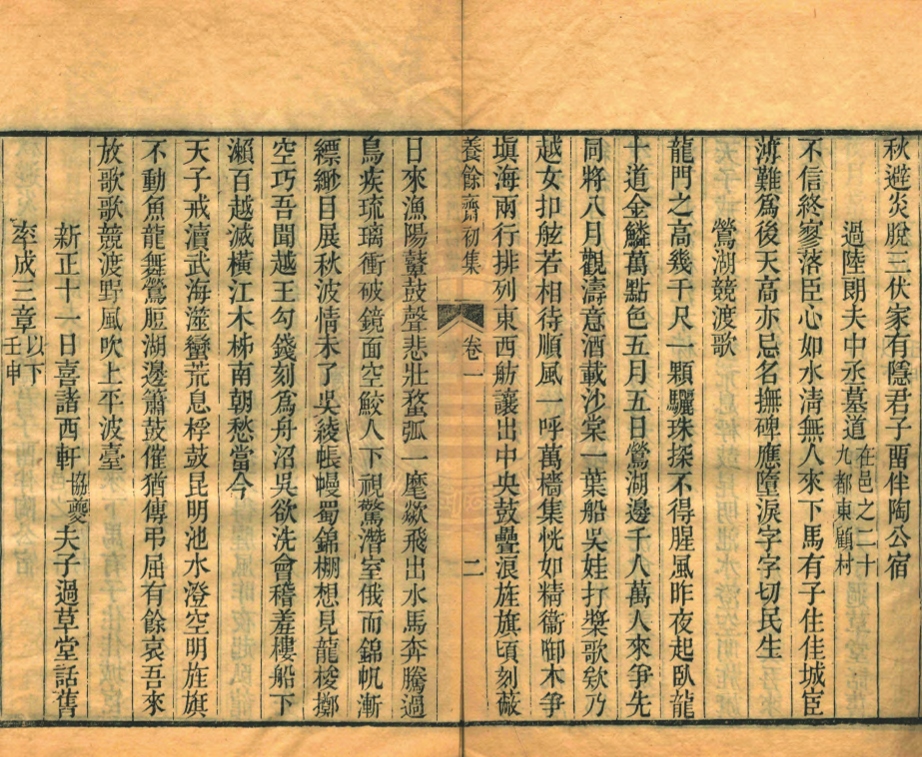 秋避炎脫三伏家有隱君子畱伴陶公宿
過陸朗夫中丞墓道在邑之二十九都東顧村
不信終寥落臣心如水淸無人來下馬有子住佳城宦
薄難爲後天高亦忌名撫碑應墮淚字字切民生
鶯湖競渡歌
龍門之高幾千尺一顆驪珠探不得腥風昨夜起臥龍
十道金鱗萬點色五月五日鶯湖邊千人萬人來爭先
同將八月觀濤意酒載沙棠一葉船吳娃打槳歌欸乃
越女扣舷若相待順風一呼萬檣集恍如精衞啣木爭
塡海兩行排列東西舫讓出中央鼓疊浪旌旗頃刻蔽
養餘齋初集
卷一
二
日來漁陽鼙鼓聲悲壯蝥弧一麾欻飛出水馬奔騰過
鳥疾琉璃衝破鏡面空鮫人下視驚潛室俄而錦帆漸
縹緲目展秋波情未了吳綾帳幔蜀錦棚想見龍梭擲
空巧吾聞越王勾錢刻爲舟沼吳欲洗會稽羞樓船下
瀨百越滅橫江木柹南朝愁當今
天子戒瀆武海澨蠻荒息桴鼓昆明池水澄空明旌旗
不動魚龍舞鶯脰湖邊簫鼓催猶傳弔屈有餘哀吾來
放歌歌競渡野風吹上平波臺
新正十一日喜諸西軒協夔夫子過草堂話舊
率成三章以下壬申